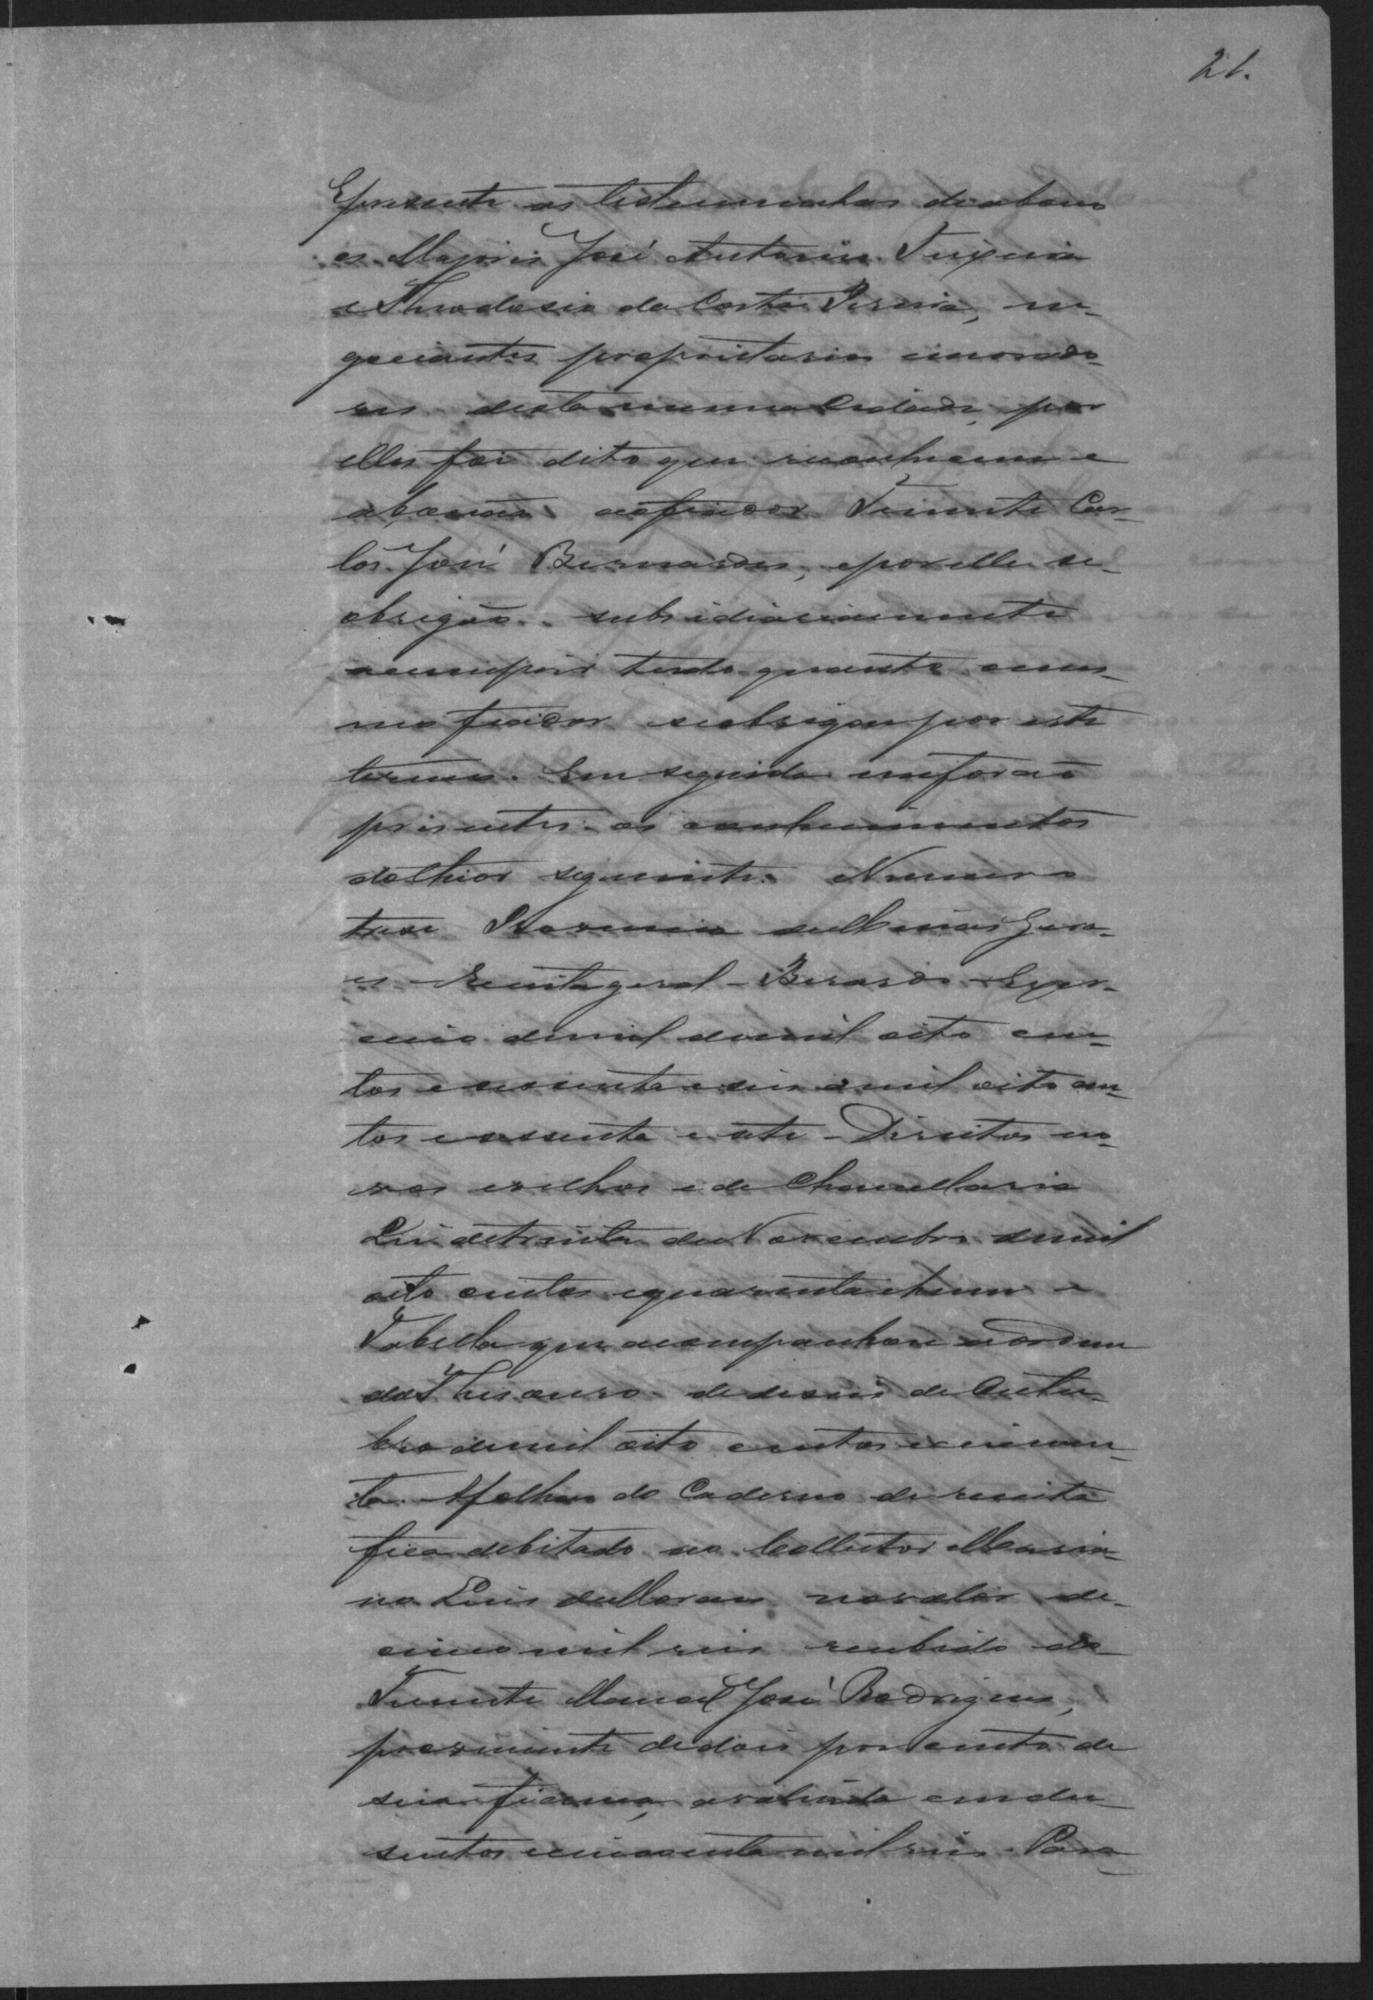 21.
E presente as testemunhas de abono
os Majores José Antonio Teixeira
e Theodosio da Costa Pereira, ne-
gociantes proprietarios e morado-
res desta mesma Cidade, por
elles foi dito que reconhecem e
abonão ao fiador Tenente Car-
los José Bernardes, e por elle se
obrigão subsidiariamente
a cumprir tudo quanto o mes-
mo fiador se obrigou por este
termo. Em seguida me forão
presentes os conhecimentos
do theor seguinte: Numero
treze Provincia de Minas Gera-
es - Receita geral - Exer-
cicio de mil de mil oito cen-
tos e sessenta e seis a mil oito cen-
tos e sessenta e sete - Direitos no-
vos e velhos e de Chancellaria
Lei de trinta de Novembro de mil
oito centos e quarenta e hum e
Tabella que acompanhou a ordem
do Thesouro de deseseis de Outu-
bro de mil oito centos e cincoen-
ta. A folhas do Caderno de receita
fica debitado ao Collector Maria-
no Luis de Moraes no valor de
cinco mil reis recebido do
Tenente Manoel José Rodrigues,
proveniente de dois por cento de
sua fiança, avaliada em du-
sentos e cincoenta mil reis. Para